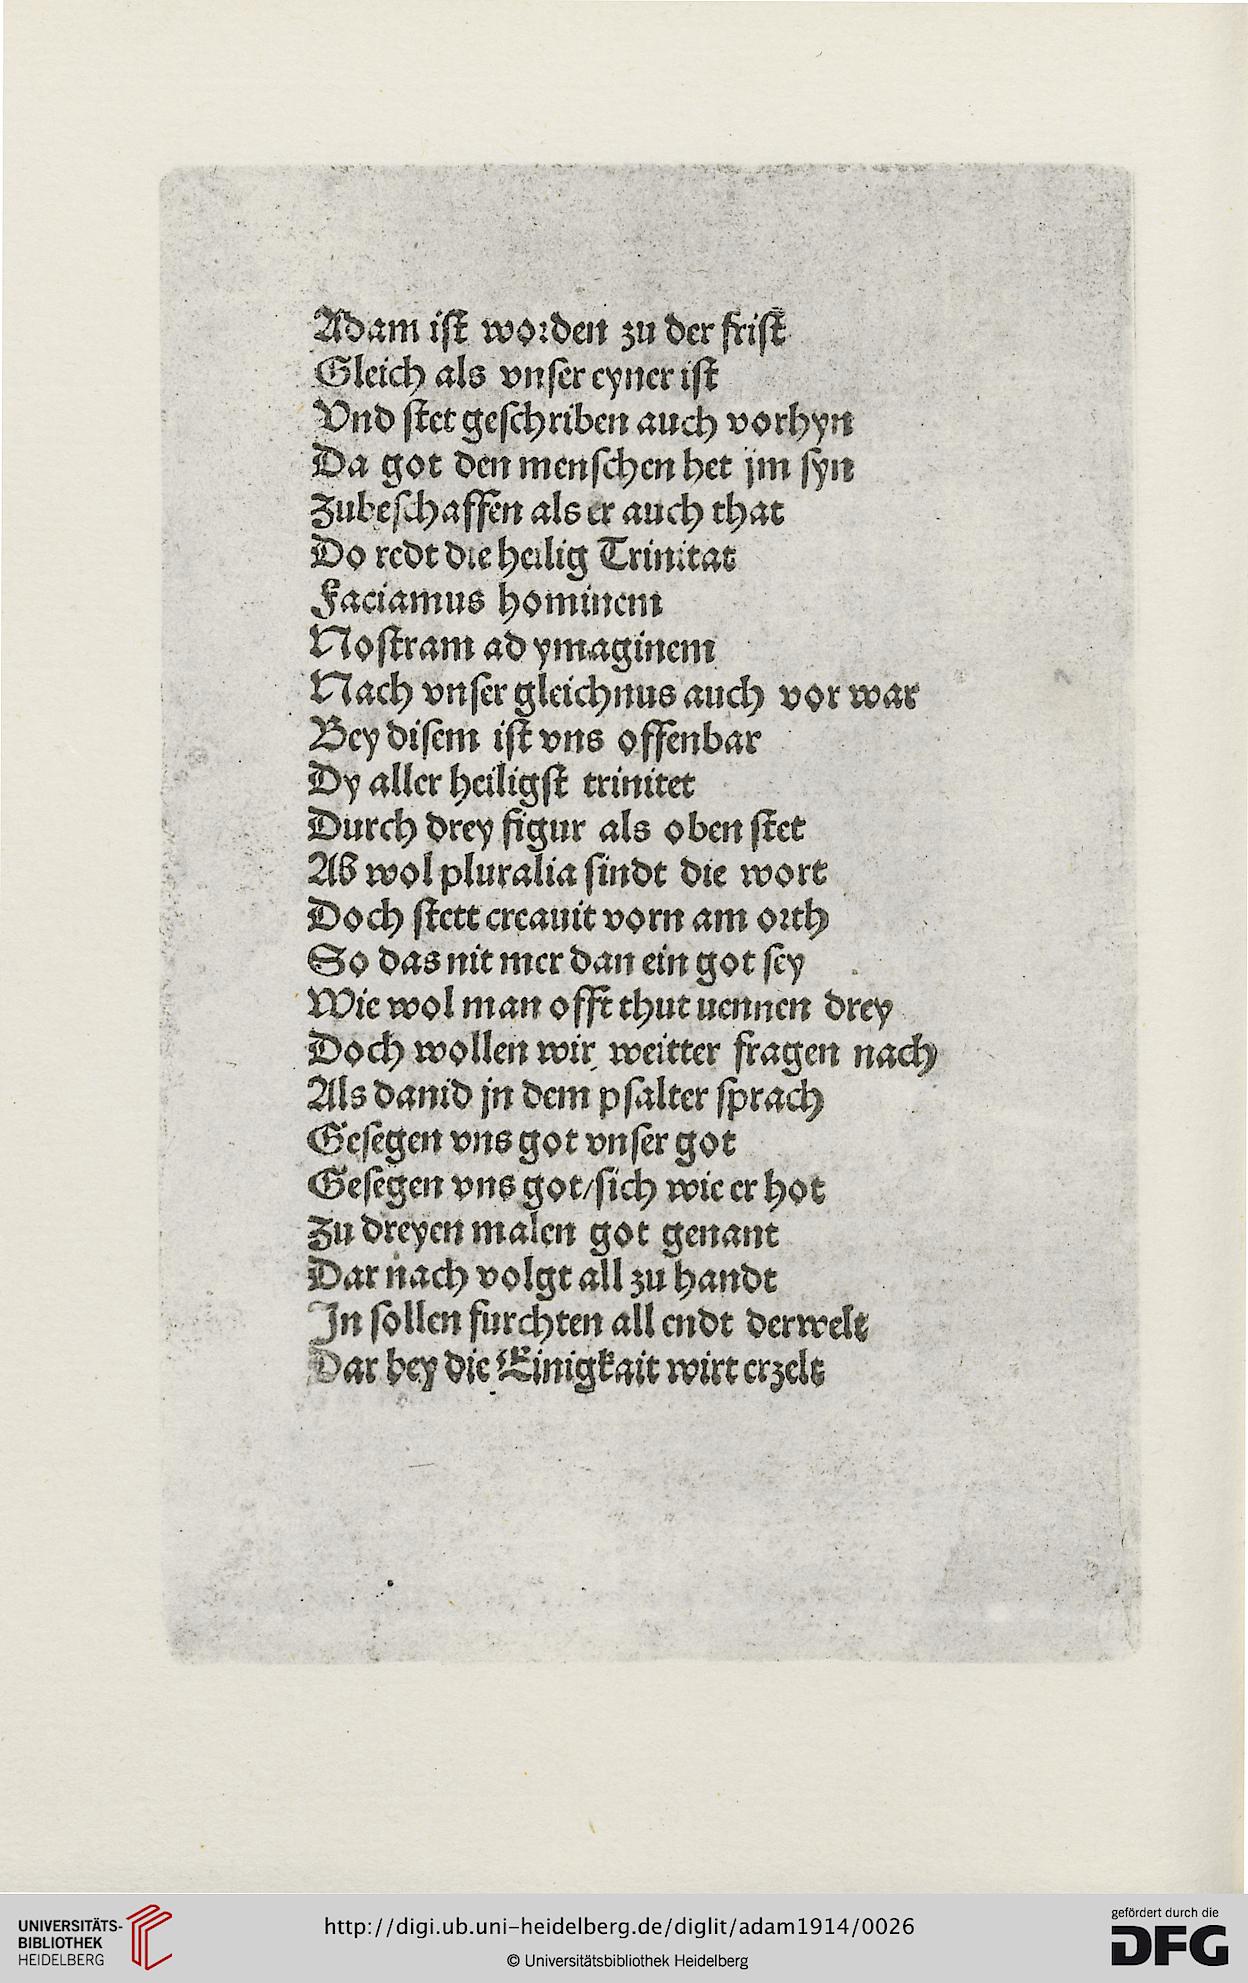 Adam ist worden zu der frist
Gleich als vnser eyner ist
Vnd stet geschriben auch vorhyn
Da got den menschen het jm syn
Zubeschaffen als er auch that
Do redt die heilig Trinitat
Faciamus hominem
Nostram ad ymaginem
Nach vnser gleichnus auch vor war
Bey disem ist vns offenbar
Dy aller heiligst trinitet
Durch drey figur als oben stet
Ab wol pluralia sindt die wort
Doch stett creauit vorn am orth
So das nit mer dan ein got sey
Wie wol man offt thut uennen drey
Doch wollen wir weitter fragen nach
Als dauid jn dem psalter sprach
Gesegen vns got vnser got
Gesegen vns got/sich wie er hot
Zu dreyen malen got genant
Dar nach volgt all zu handt
In sollen furchten all endt derwelt
Dar bey die Einigkait wirt erzelt
UNIVERSITÄTS-
BIBLIOTHEK
HEIDELBERG
http://digi.ub.uni-heidelberg.de/diglit/adam1914/0026
© Universitätsbibliothek Heidelberg
gefördert durch die
DFG